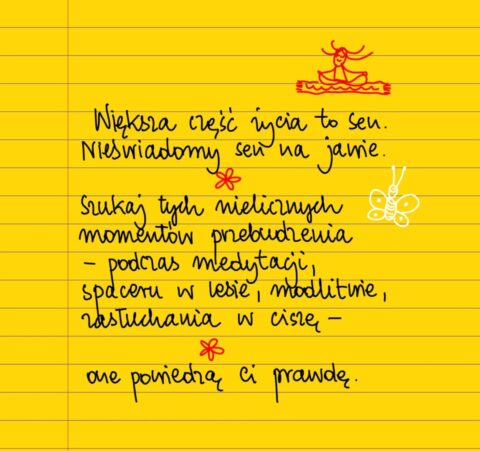 Większa część życia to sen.
Nieświadomy sen na jawie.
Szukaj tych nielicznych
momentów przebudzenia
– podczas medytacji,
spaceru w lesie, modlitwie,
zasłuchania w ciszę –
one powiedzą ci prawdę.